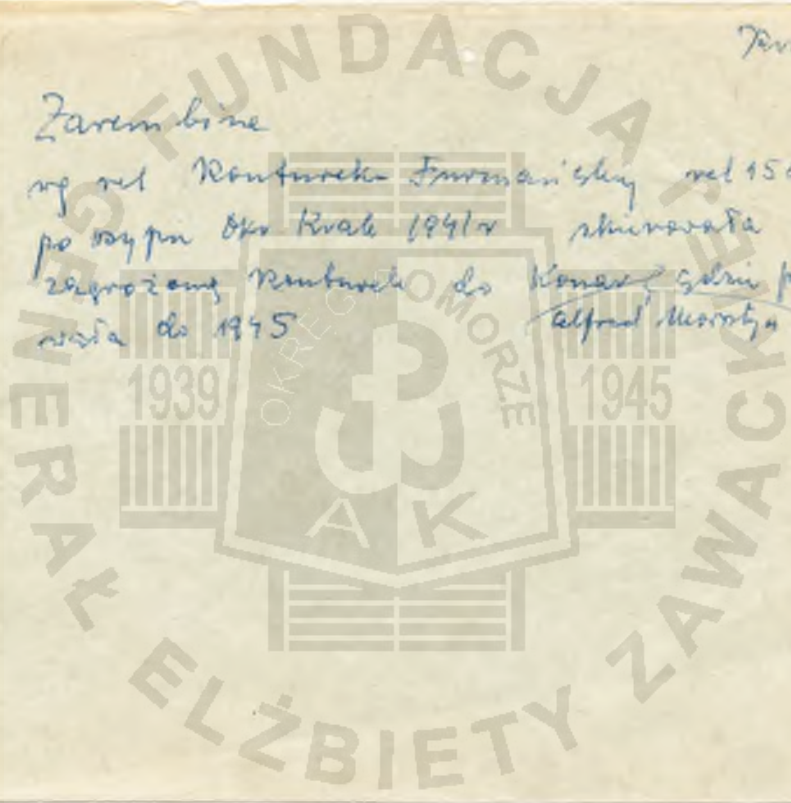 Zarembina
wg rel Konturek-Furmańskiej rel 15
po wsypie Okr Krak 1941r skierowała
zagrożoną Konturek do Konar gdzie
do 1945
Alfred
FUNDACJA GENERAŁ ELŻBIETY ZAWACKIEJ
OKRĘG POMORZE
1939
1945
AK